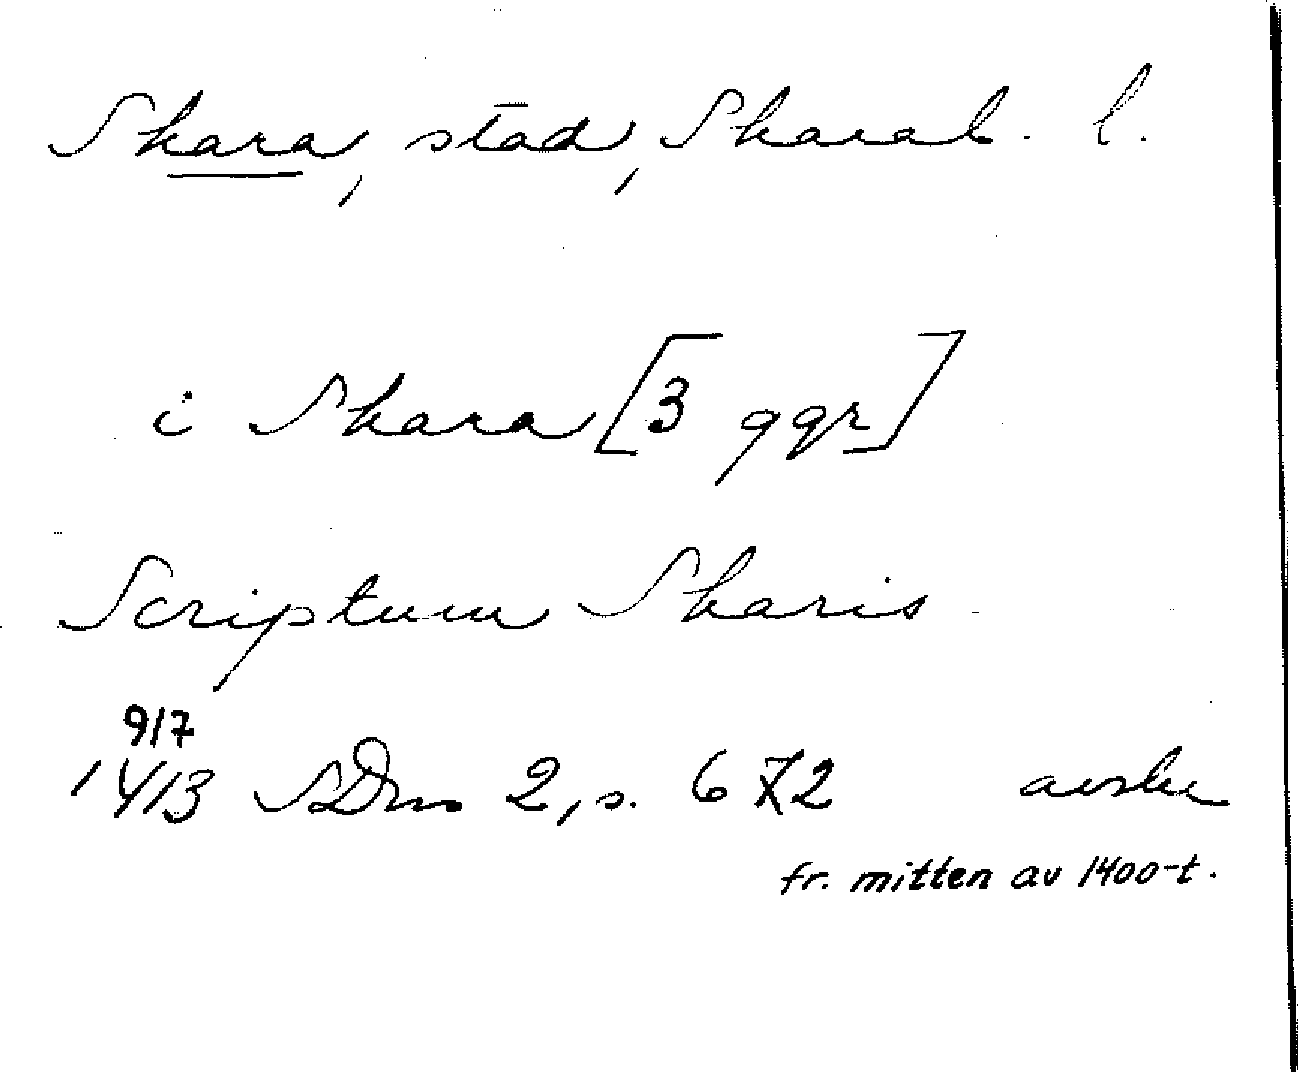 Skara, stad, Skarab. l.
i Skara [3 ggr]
Scriptum Skaris
9/7
1413 SDns 2, s. 672 avskr
fr. mitten av 1400-t.